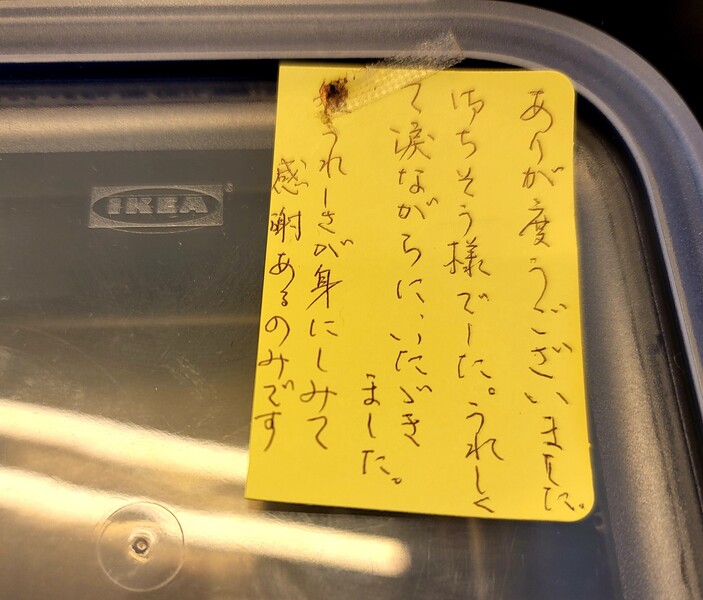 ありが度うございました。
御ちそう様でした。うれしく
て涙ながらに、いたゞき
ました。
うれしさが身にしみて
感謝あるのみです
IKEA